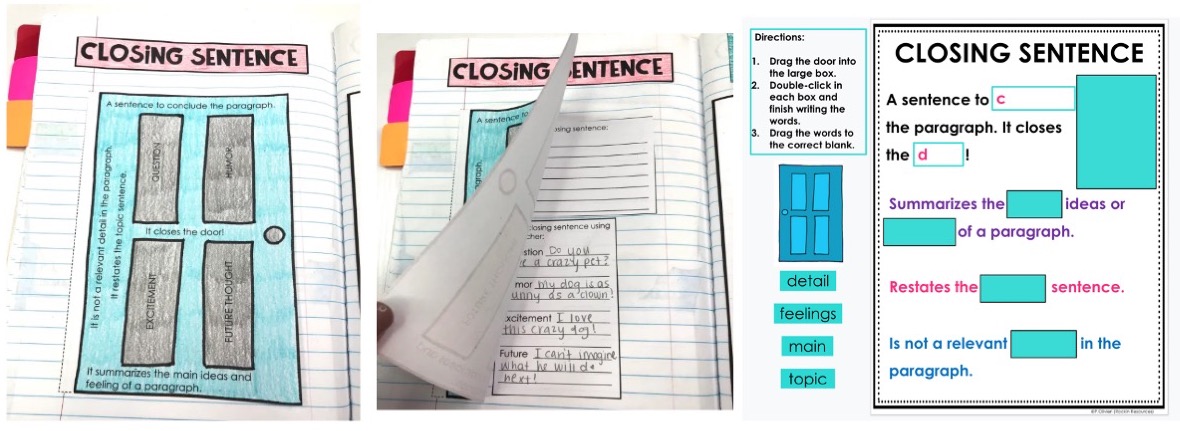 CLOSING SENTENCE
A sentence to conclude the paragraph.
It is not a relevant detail in the paragraph.
It restates the topic sentence.
QUESTION
HUMOR
It closes the door!
EXCITEMENT
FUTURE THOUGHT
It summarizes the main ideas and
feeling of a paragraph.
CLOSING SENTENCE
A sentence to
osing sentence:
closing sentence using
cher:
stion Do you
e a crazy pet?
mor my dog is as
unny as a clown!
xcitement I love
this crazy dog!
Future I can't imagine
what he will do
next!
Directions:
1. Drag the door into
the large box.
2. Double-click in
each box and
finish writing the
words.
3. Drag the words to
the correct blank.
detail
feelings
main
topic
CLOSING SENTENCE
A sentence to c
the paragraph. It closes
the d !
Summarizes the ideas or
of a paragraph.
Restates the sentence.
Is not a relevant in the
paragraph.